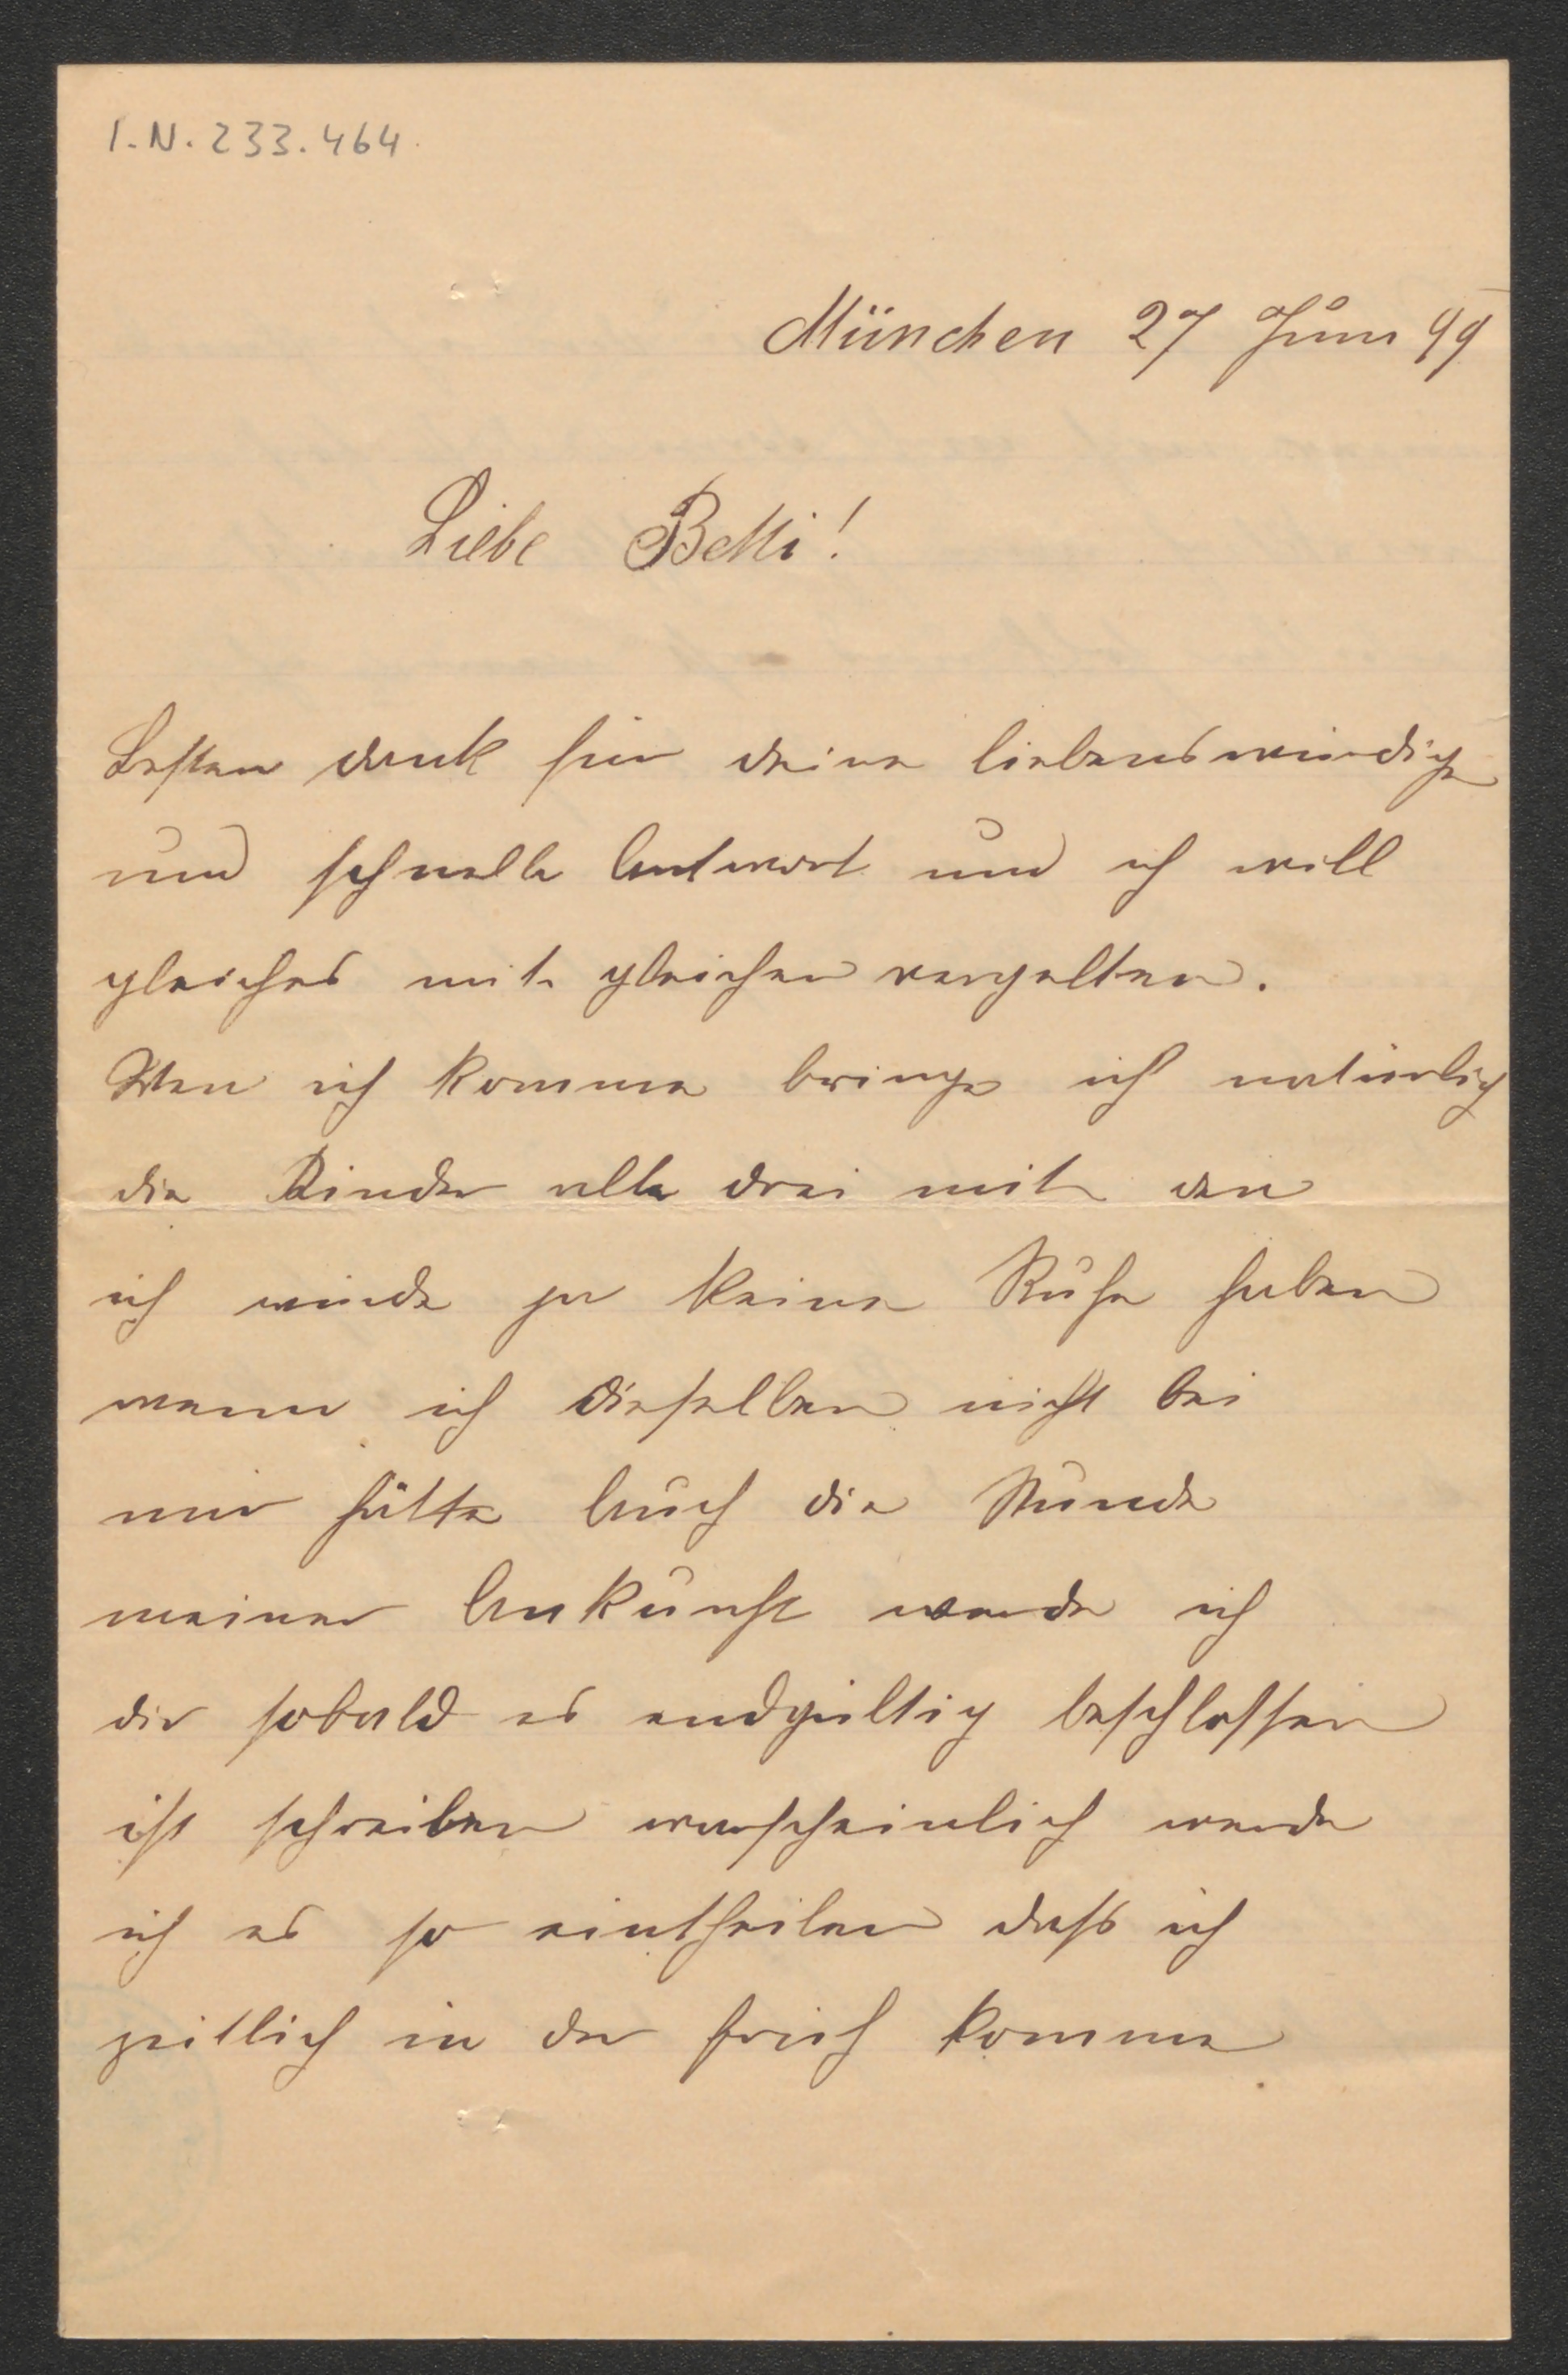 I.N. 233.464.
München 27 Juni 99
Liebe Betti!
Besten dank für deine liebenswürdige
und schnelle Antwort und ich will
gleiches mit gleichen vergelten.
Wen ich komme bringe ich natürlich
die Kinder alle drei mit den
ich würde ja keine Ruhe haben
wenn ich dieselben nicht bei
mir hätte Auch die Stunde
meiner Ankunft werde ich
dir sobald es endgültig beschlossen
ist schreiben warscheinlich werde
ich es so eintheilen daß ich
zeitlich in der früh komme